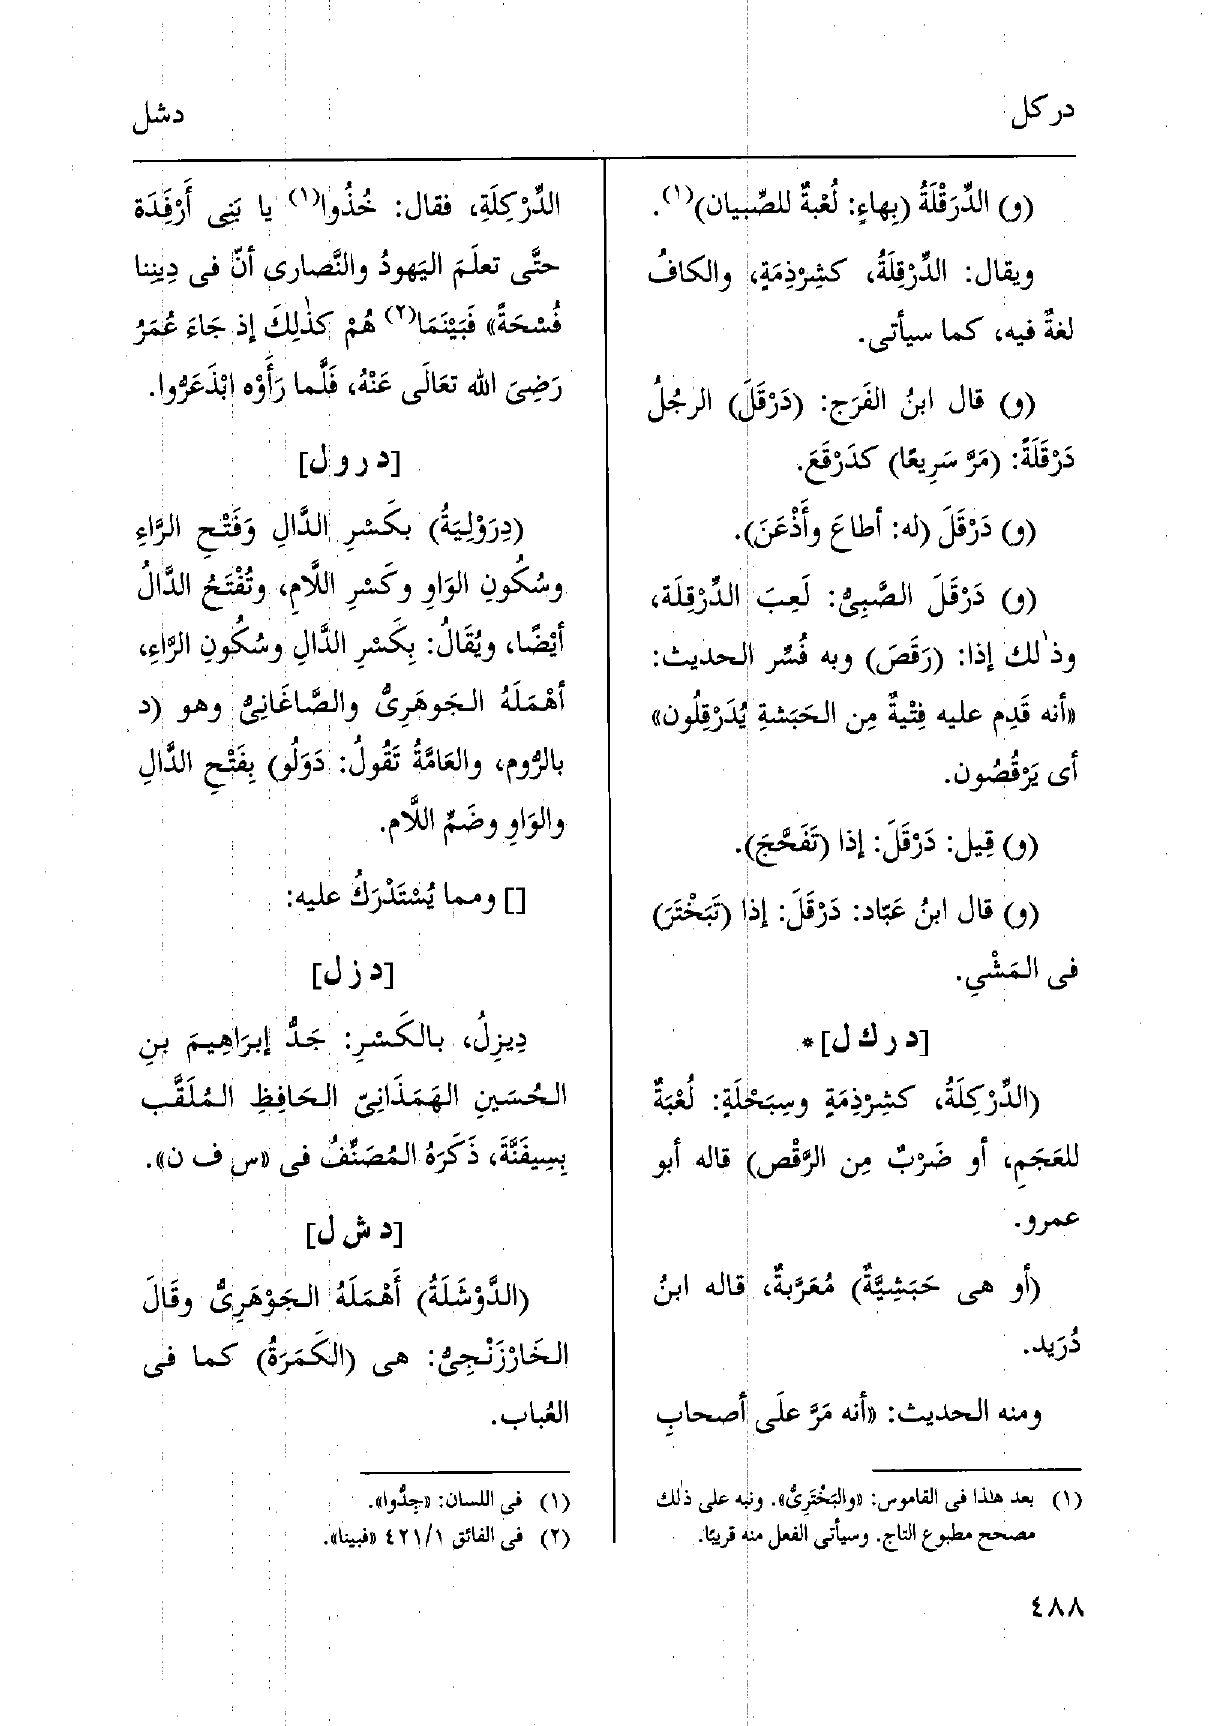 دركل
دشل
(و) الدِّرَقْلَةُ (بِهاءٍ: لُعْبةٌ للصِّبيان)(١).
ويقال: الدِّرْقِلَةُ، كشِرْذِمَةٍ، والكافُ
لغةٌ فيه، كما سيأتى.
(و) قال ابنُ الفَرَج: (دَرْقَلَ) الرجُلُ
دَرْقَلَةً: (مَرَّ سَرِيعًا) كدَرْقَعَ.
(و) دَرْقَلَ (له: أطاعَ وأَذْعَنَ).
(و) دَرْقَلَ الصَّبِىُّ: لَعِبَ الدِّرْقِلَة،
وذٰلك إذا: (رَقَصَ) وبه فُسِّر الحديث:
«أنه قَدِم عليه فِتْيةٌ مِن الحَبَشةِ يُدَرْقِلُون»
أى يَرْقُصُون.
(و) قِيل: دَرْقَلَ: إذا (تَفَحَّجَ).
(و) قال ابنُ عَبّاد: دَرْقَلَ: إذا (تَبَخْتَرَ)
فى المَشْيِ.
[د ر ك ل]*
(الدِّرْكِلَةُ، كشِرْذِمَةٍ وسِبَحْلَةٍ: لُعْبَةٌ
للعَجَمِ، أو ضَرْبٌ مِن الرَّقْص) قاله أبو
عمرو.
(أو هى حَبَشِيَّةٌ) مُعَرَّبة، قاله ابنُ
دُرَيد.
ومنه الحديث: «أنه مَرَّ علَى أصحابِ
(١) بعد هٰذا فى القاموس: «والبَخْتَرِىُّ». ونبه على ذٰلك
مصحح مطبوع التاج. وسيأتى الفعل منه قريبًا.
الدِّرْكِلَةِ، فقال: خُذُوا(١) يا بَنِى أَرْفِدَة
حتَّى تعلَمَ اليَهودُ والنَّصارى أنّ فى دِينِنا
فُسْحَةً» فَبَيْنَمَا(٢) هُمْ كذٰلِكَ إذ جَاءَ عُمَرُ
رَضِىَ الله تعَالَى عَنْهُ، فَلَّما رَأَوْه ابْذَعَرُّوا.
[د ر و ل]
(دِرَوْلِيَةُ) بكَسْرِ الدَّالِ وَفَتْحِ الرَّاءِ
وسُكُونِ الوَاوِ وكَسْرِ اللَّامِ، وتُفْتَحُ الدَّالُ
أيْضًا، ويُقَالُ: بِكَسْرِ الدَّالِ وسُكُونِ الرَّاءِ،
أهْمَلَهُ الجَوهَرِىُّ والصَّاغَانِىُّ وهو (د
بالرُّوم، والعَامَّةُ تَقُولُ: دَوَلُو) بِفَتْحِ الدَّالِ
والوَاوِ وضَمِّ اللَّام.
[] ومما يُسْتَدْرَكُ عليه:
[د ز ل]
دِيزِلُ، بالكَسْرِ: جَدُّ إبرَاهِيمَ بنِ
الحُسَينِ الهَمَذَانِىّ الحَافِظِ المُلَقَّب
بِسِيفَنَّةَ، ذَكَرَهُ المُصَنِّفُ فى «س ف ن».
[د ش ل]
(الدَّوْشَلَةُ) أَهْمَلَهُ الجَوْهَرِىُّ وقَالَ
الخَارْزَنْجِىُّ: هى (الكَمَرَةُ) كما فى
العُباب.
(١) فى اللسان: «جِدُّوا».
(٢) فى الفائق ٤٢١/١ «فبينا».
٤٨٨